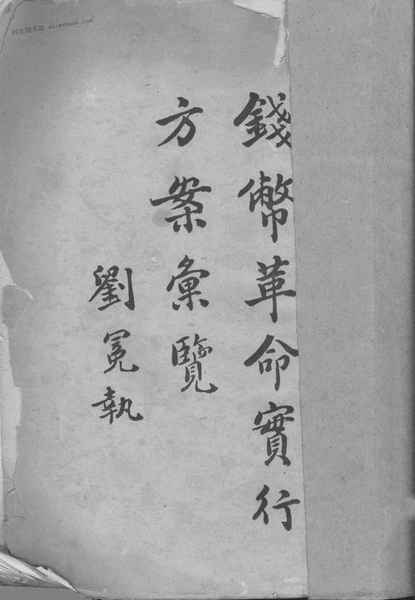 錢幣革命實行
方案彙覽
劉冕執